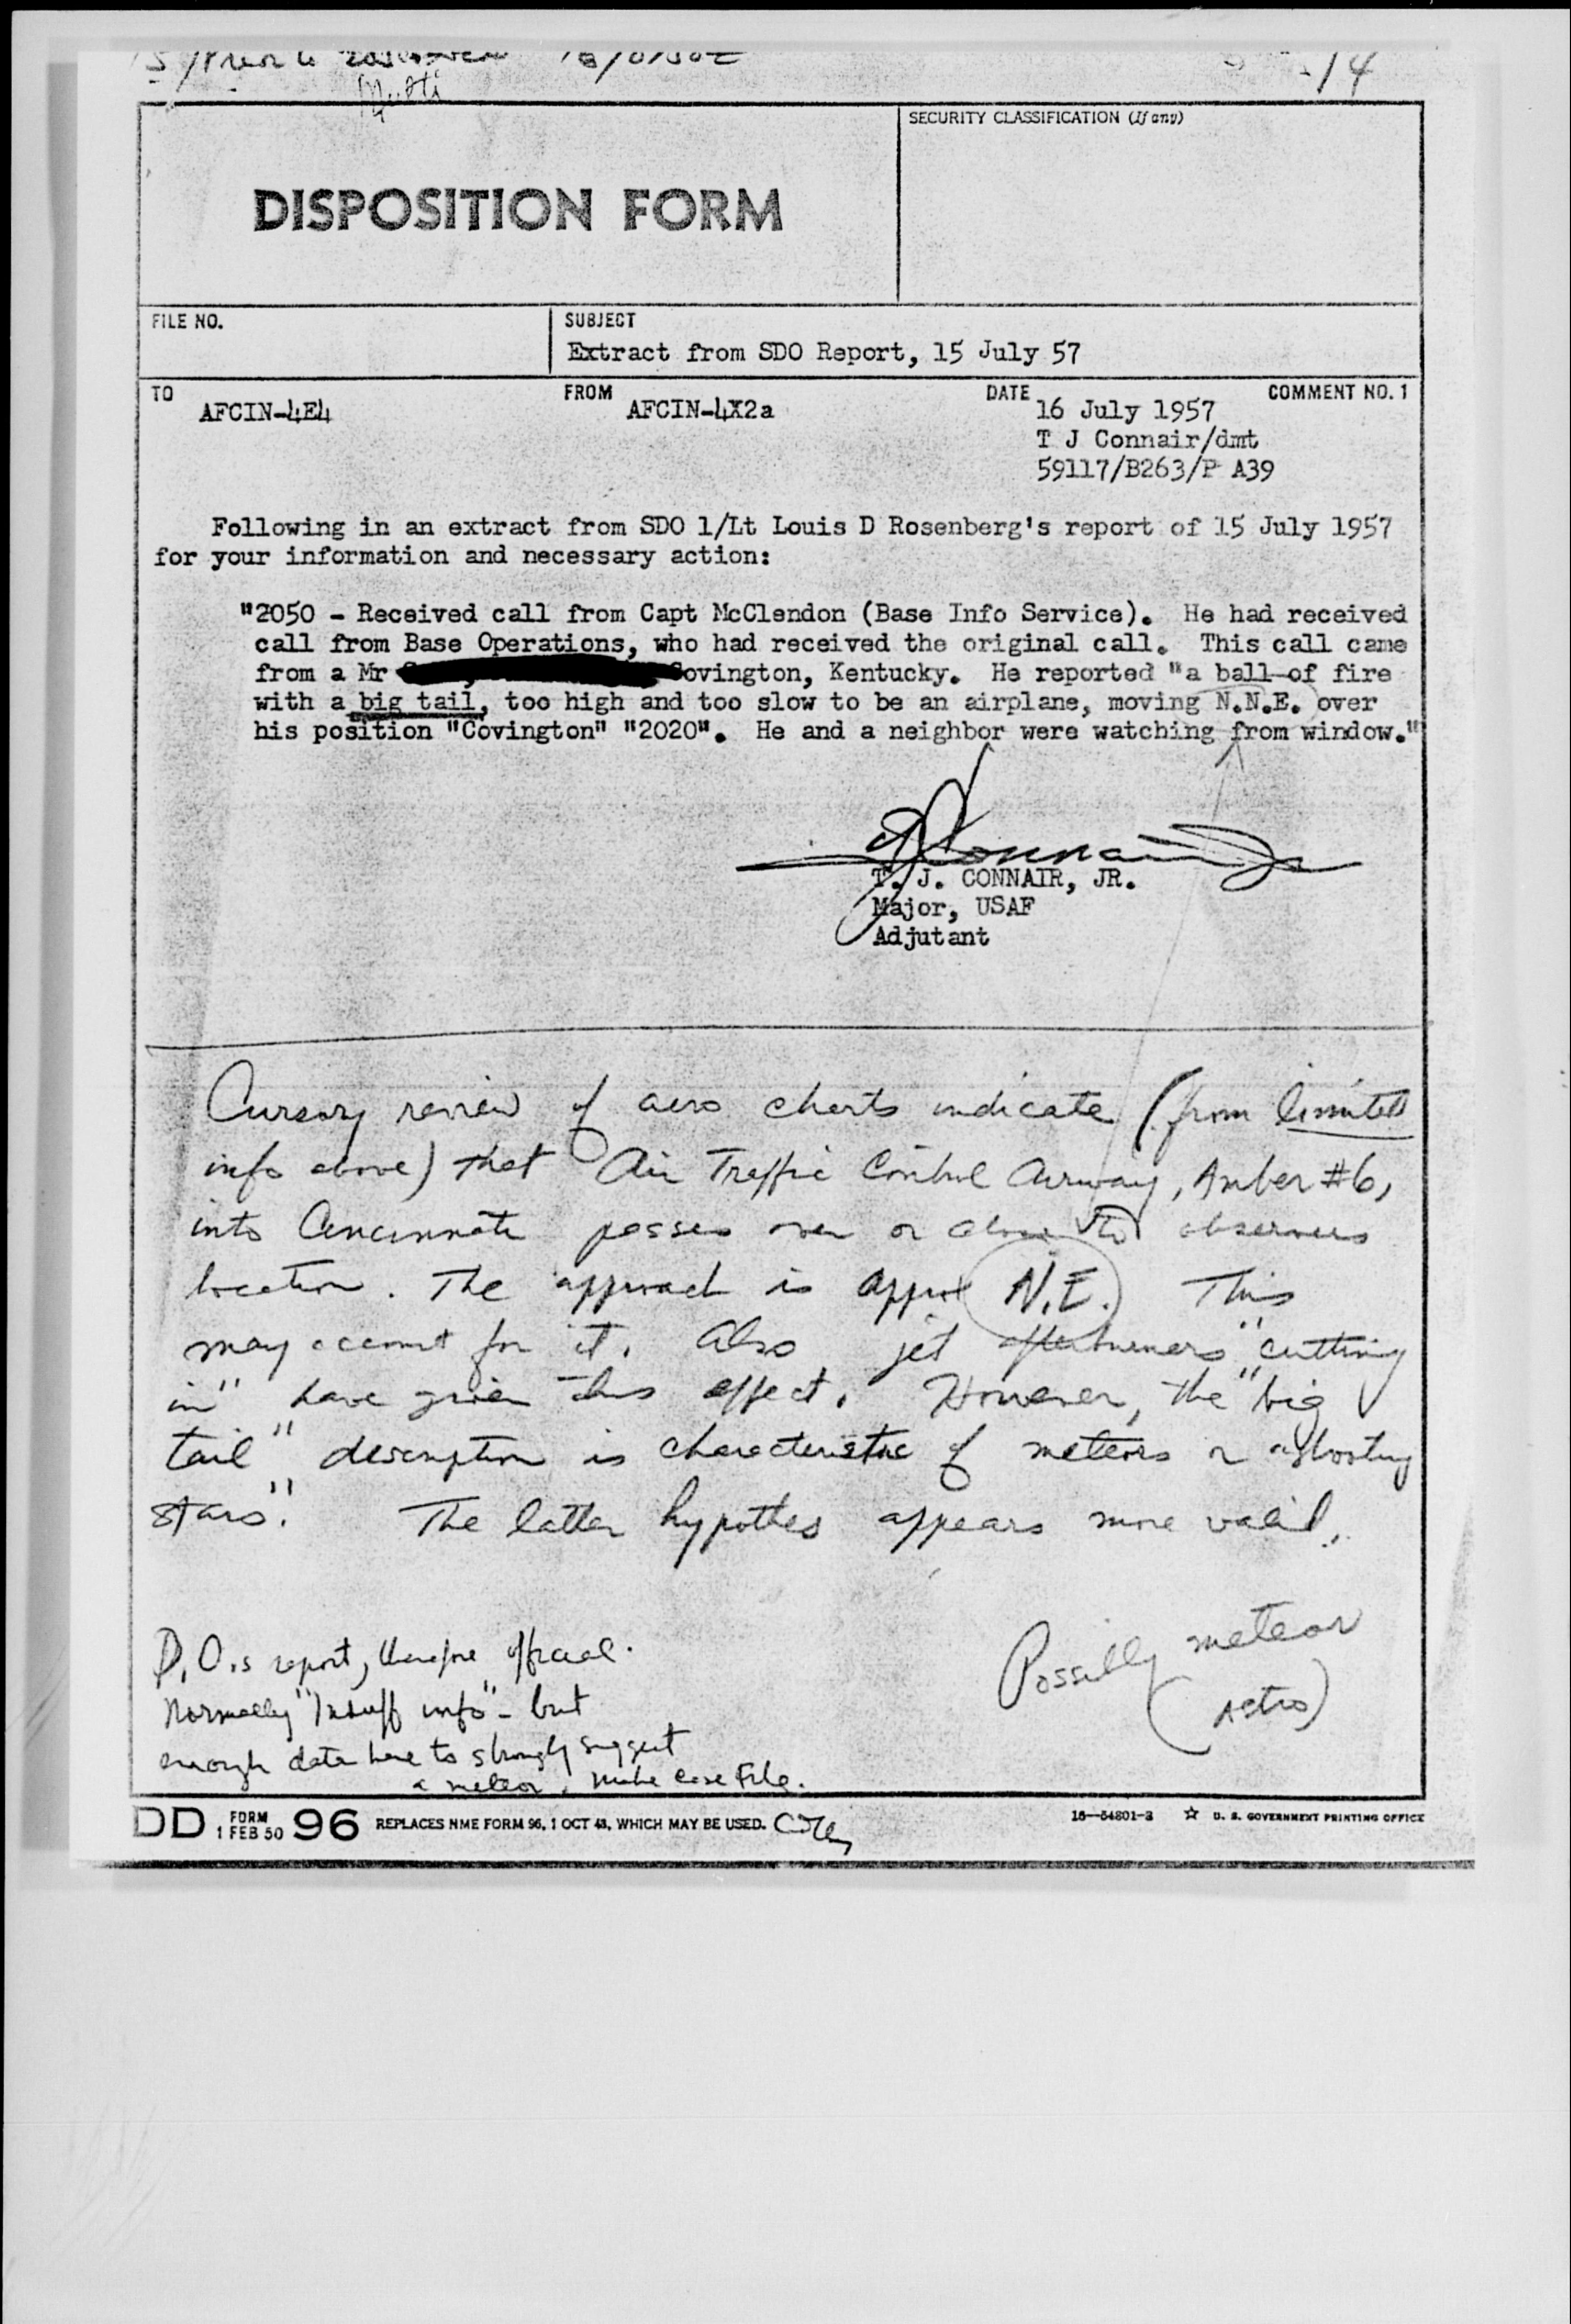 Multi
14
SECURITY CLASSIFICATION (If any)
DISPOSITION FORM
FILE NO.
SUBJECT
Extract from SDO Report, 15 July 57
TO
AFCIN-4E4
FROM
AFCIN-4X2a
DATE
COMMENT NO. 1
16 July 1957
T J Connair/dmt
59117/B263/P A39
Following in an extract from SDO 1/Lt Louis D Rosenberg's report of 15 July 1957
for your information and necessary action:
"2050 - Received call from Capt McClendon (Base Info Service). He had received
call from Base Operations, who had received the original call. This call came
from a Mr Covington, Kentucky. He reported "a ball of fire
with a big tail, too high and too slow to be an airplane, moving N.N.E. over
his position "Covington" "2020". He and a neighbor were watching from window."
T. J. CONNAIR, JR.
Major, USAF
Adjutant
Cursory review of aero charts indicate (from limited
info above) that Air Traffic Control Airway, Amber #6,
into Cincinnati passes over or close to observers
location. The approach is approx N.E. This
may account for it. Also jet afterburners "cutting
in" have given this effect. However, the "big
tail" description is characteristic of meteors or "shooting
stars". The latter hypothes appears more valid.
D.O.s report, therefore official.
Normally "Insuff info" - but
enough data here to strongly suggest
a meteor. Make case file.
Possibly meteor
(Astro)
DD FORM 1 FEB 50 96 REPLACES NME FORM 96, 1 OCT 48, WHICH MAY BE USED.
16—54801-3 ☆ U. S. GOVERNMENT PRINTING OFFICE